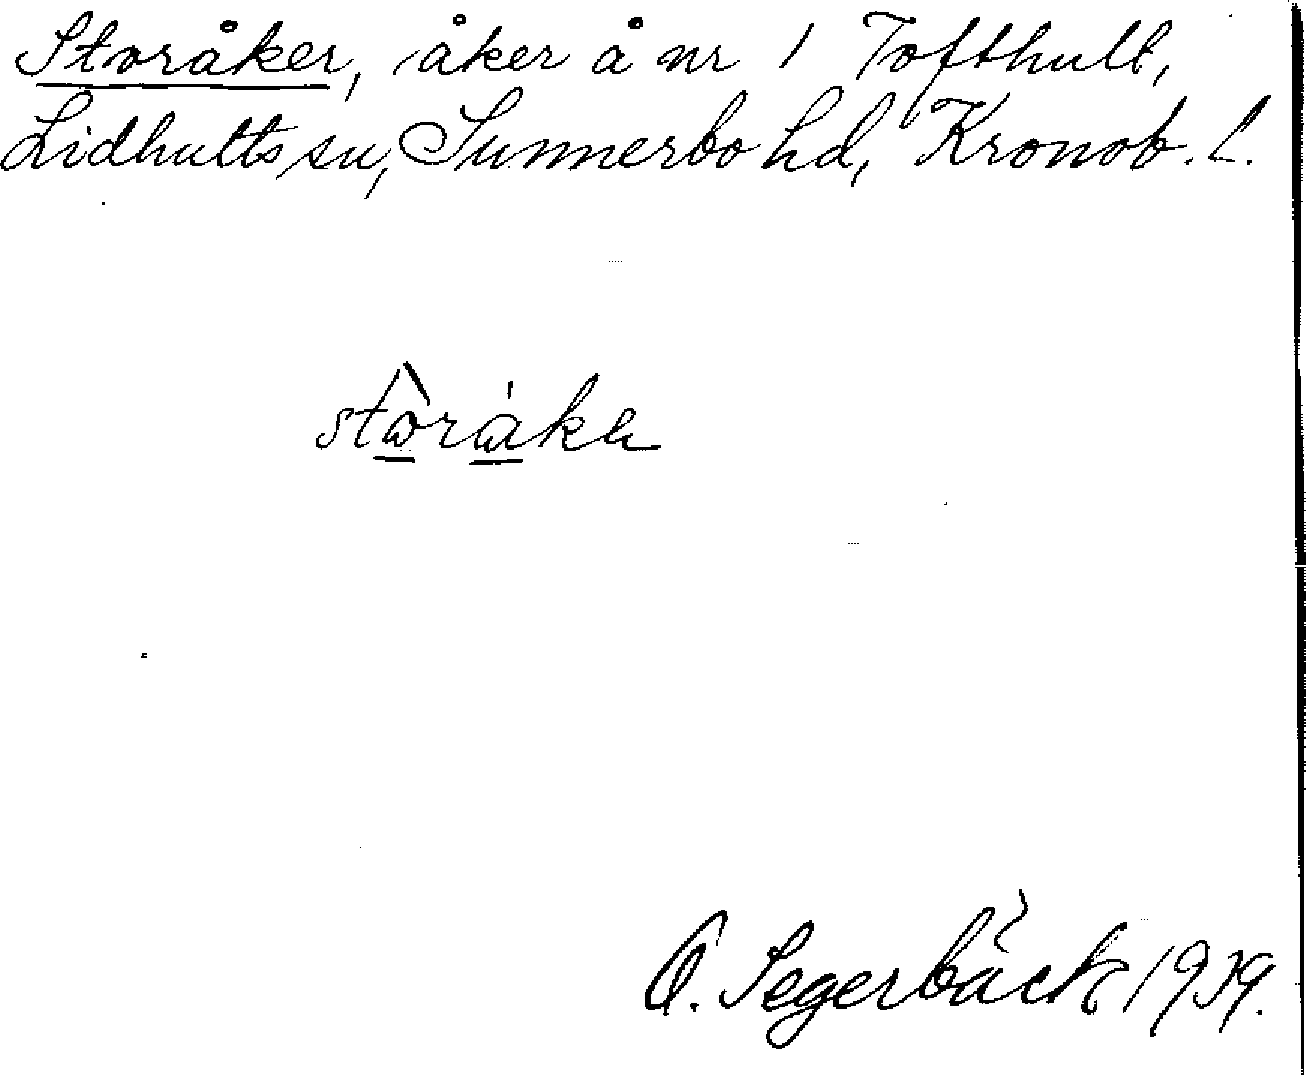 Storåker, åker å nr 1 Tofthult,
Lidhults sn, Sunnerbo hd, Kronob. l.
Segerbäck 1939.